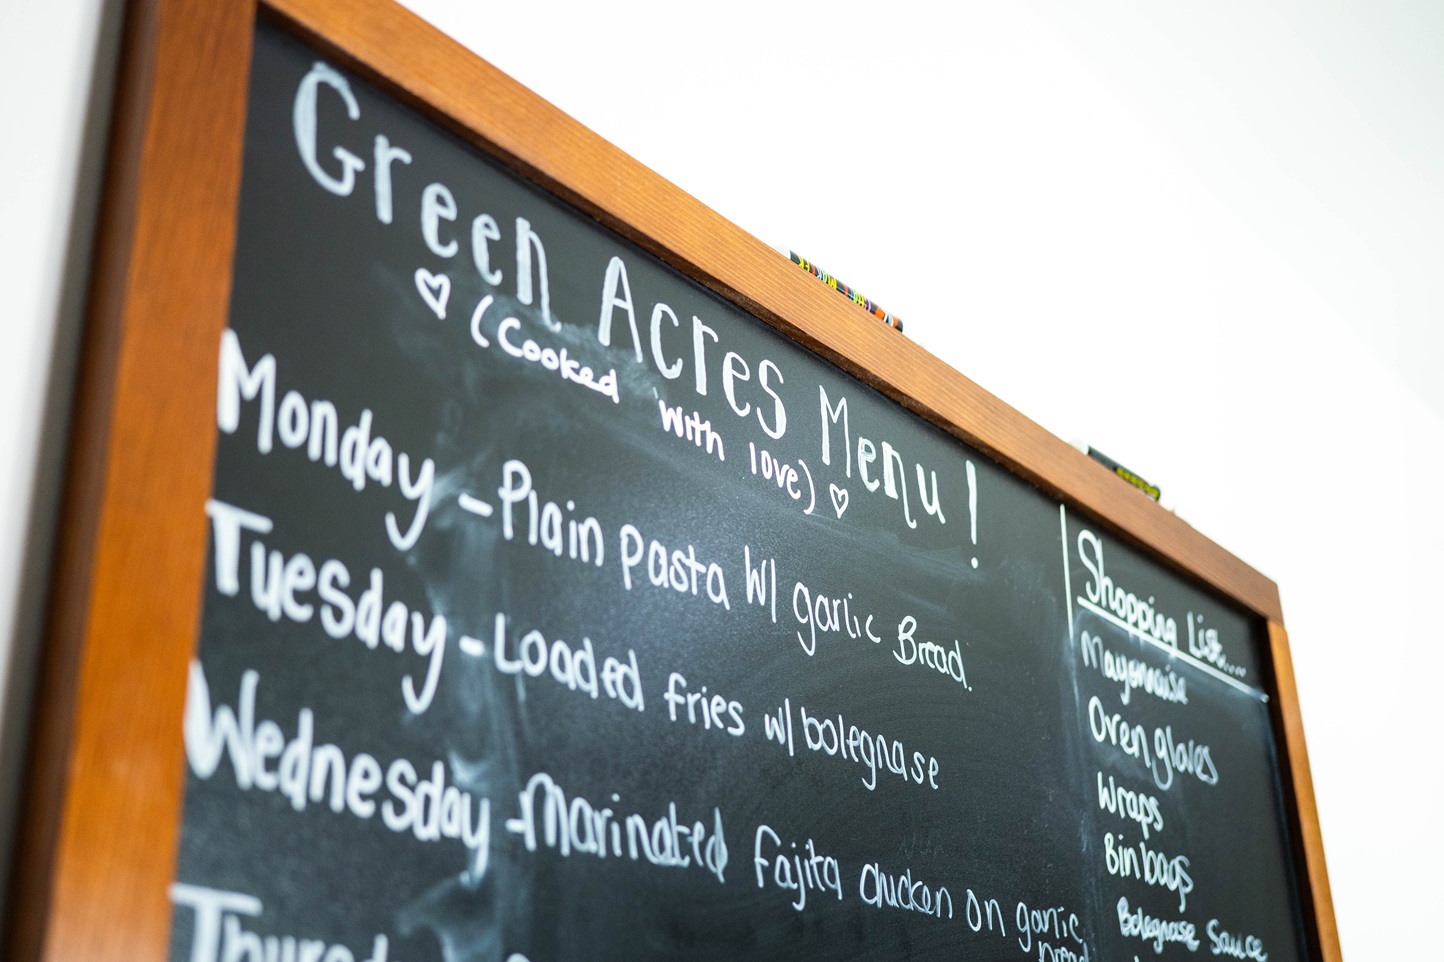 Green Acres Menu!
♡ (Cooked with love) ♡
Monday - Plain pasta w/ garlic Bread.
Tuesday - Loaded fries w/ bolegnase
Wednesday - Marinated fajita chicken on garlic
bread
Thursd
Shopping List....
Mayonnaise
Oven gloves
Wraps
Bin bags
Bolegnase Sauce